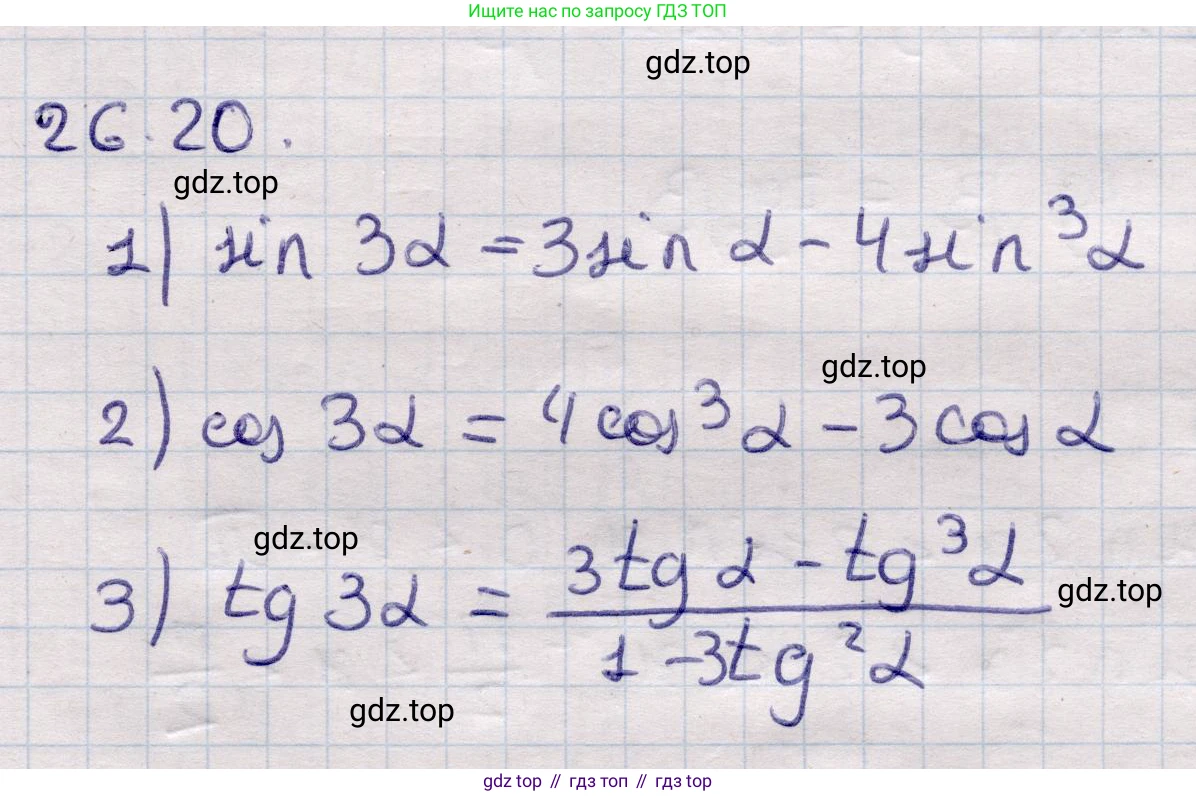 Ищите нас по запросу ГДЗ ТОП
gdz.top
26.20.
gdz.top
1) sin 3α = 3 sin α - 4 sin³ α
gdz.top
2) cos 3α = 4 cos³ α - 3 cos α
gdz.top
3) tg 3α = (3 tg α - tg³ α) / (1 - 3 tg² α)
gdz.top
gdz.top
gdz top // гдз топ // гдз top